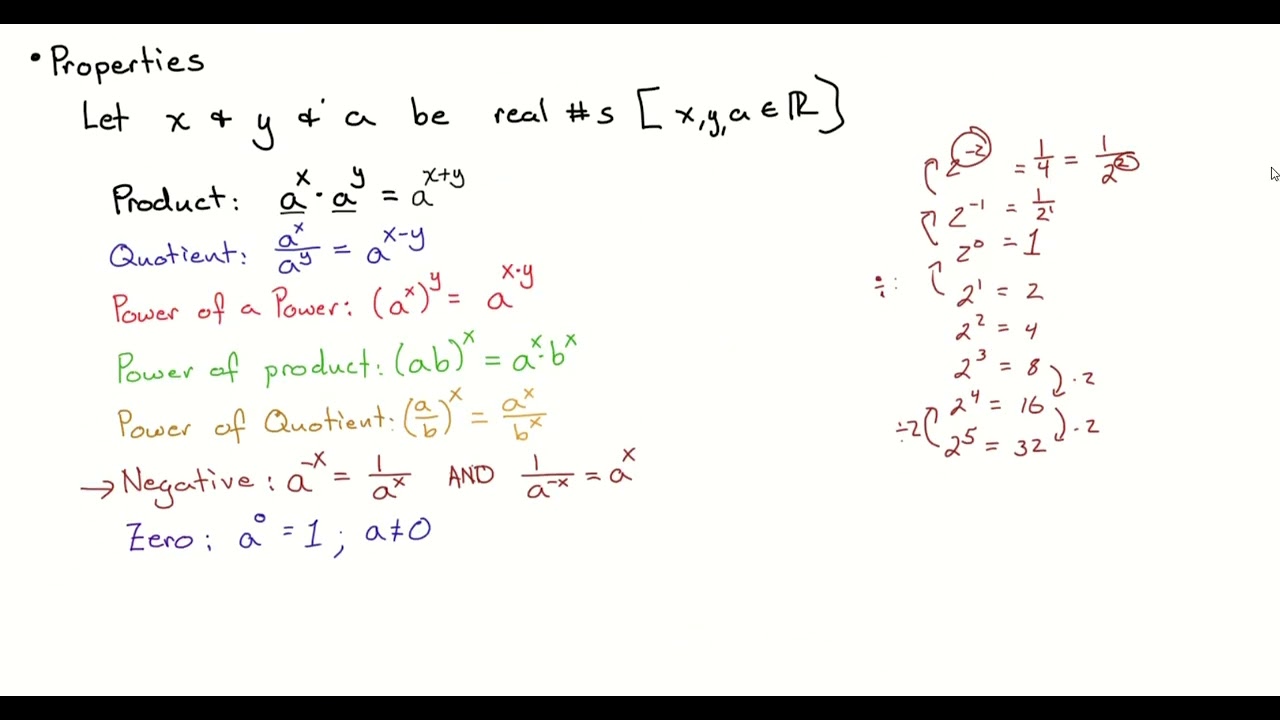 • Properties
Let x & y & a be real #s [x,y,a ∈ ℝ]
Product: a^x · a^y = a^(x+y)
Quotient: a^x/a^y = a^(x-y)
Power of a Power: (a^x)^y = a^(x·y)
Power of product: (ab)^x = a^x · b^x
Power of Quotient: (a/b)^x = a^x/b^x
→ Negative: a^-x = 1/a^x AND 1/a^-x = a^x
Zero: a^0 = 1; a≠0
2^-2 = 1/4 = 1/2^2
2^-1 = 1/2^1
2^0 = 1
÷:
2^1 = 2
2^2 = 4
2^3 = 8
·2
2^4 = 16
÷2
·2
2^5 = 32